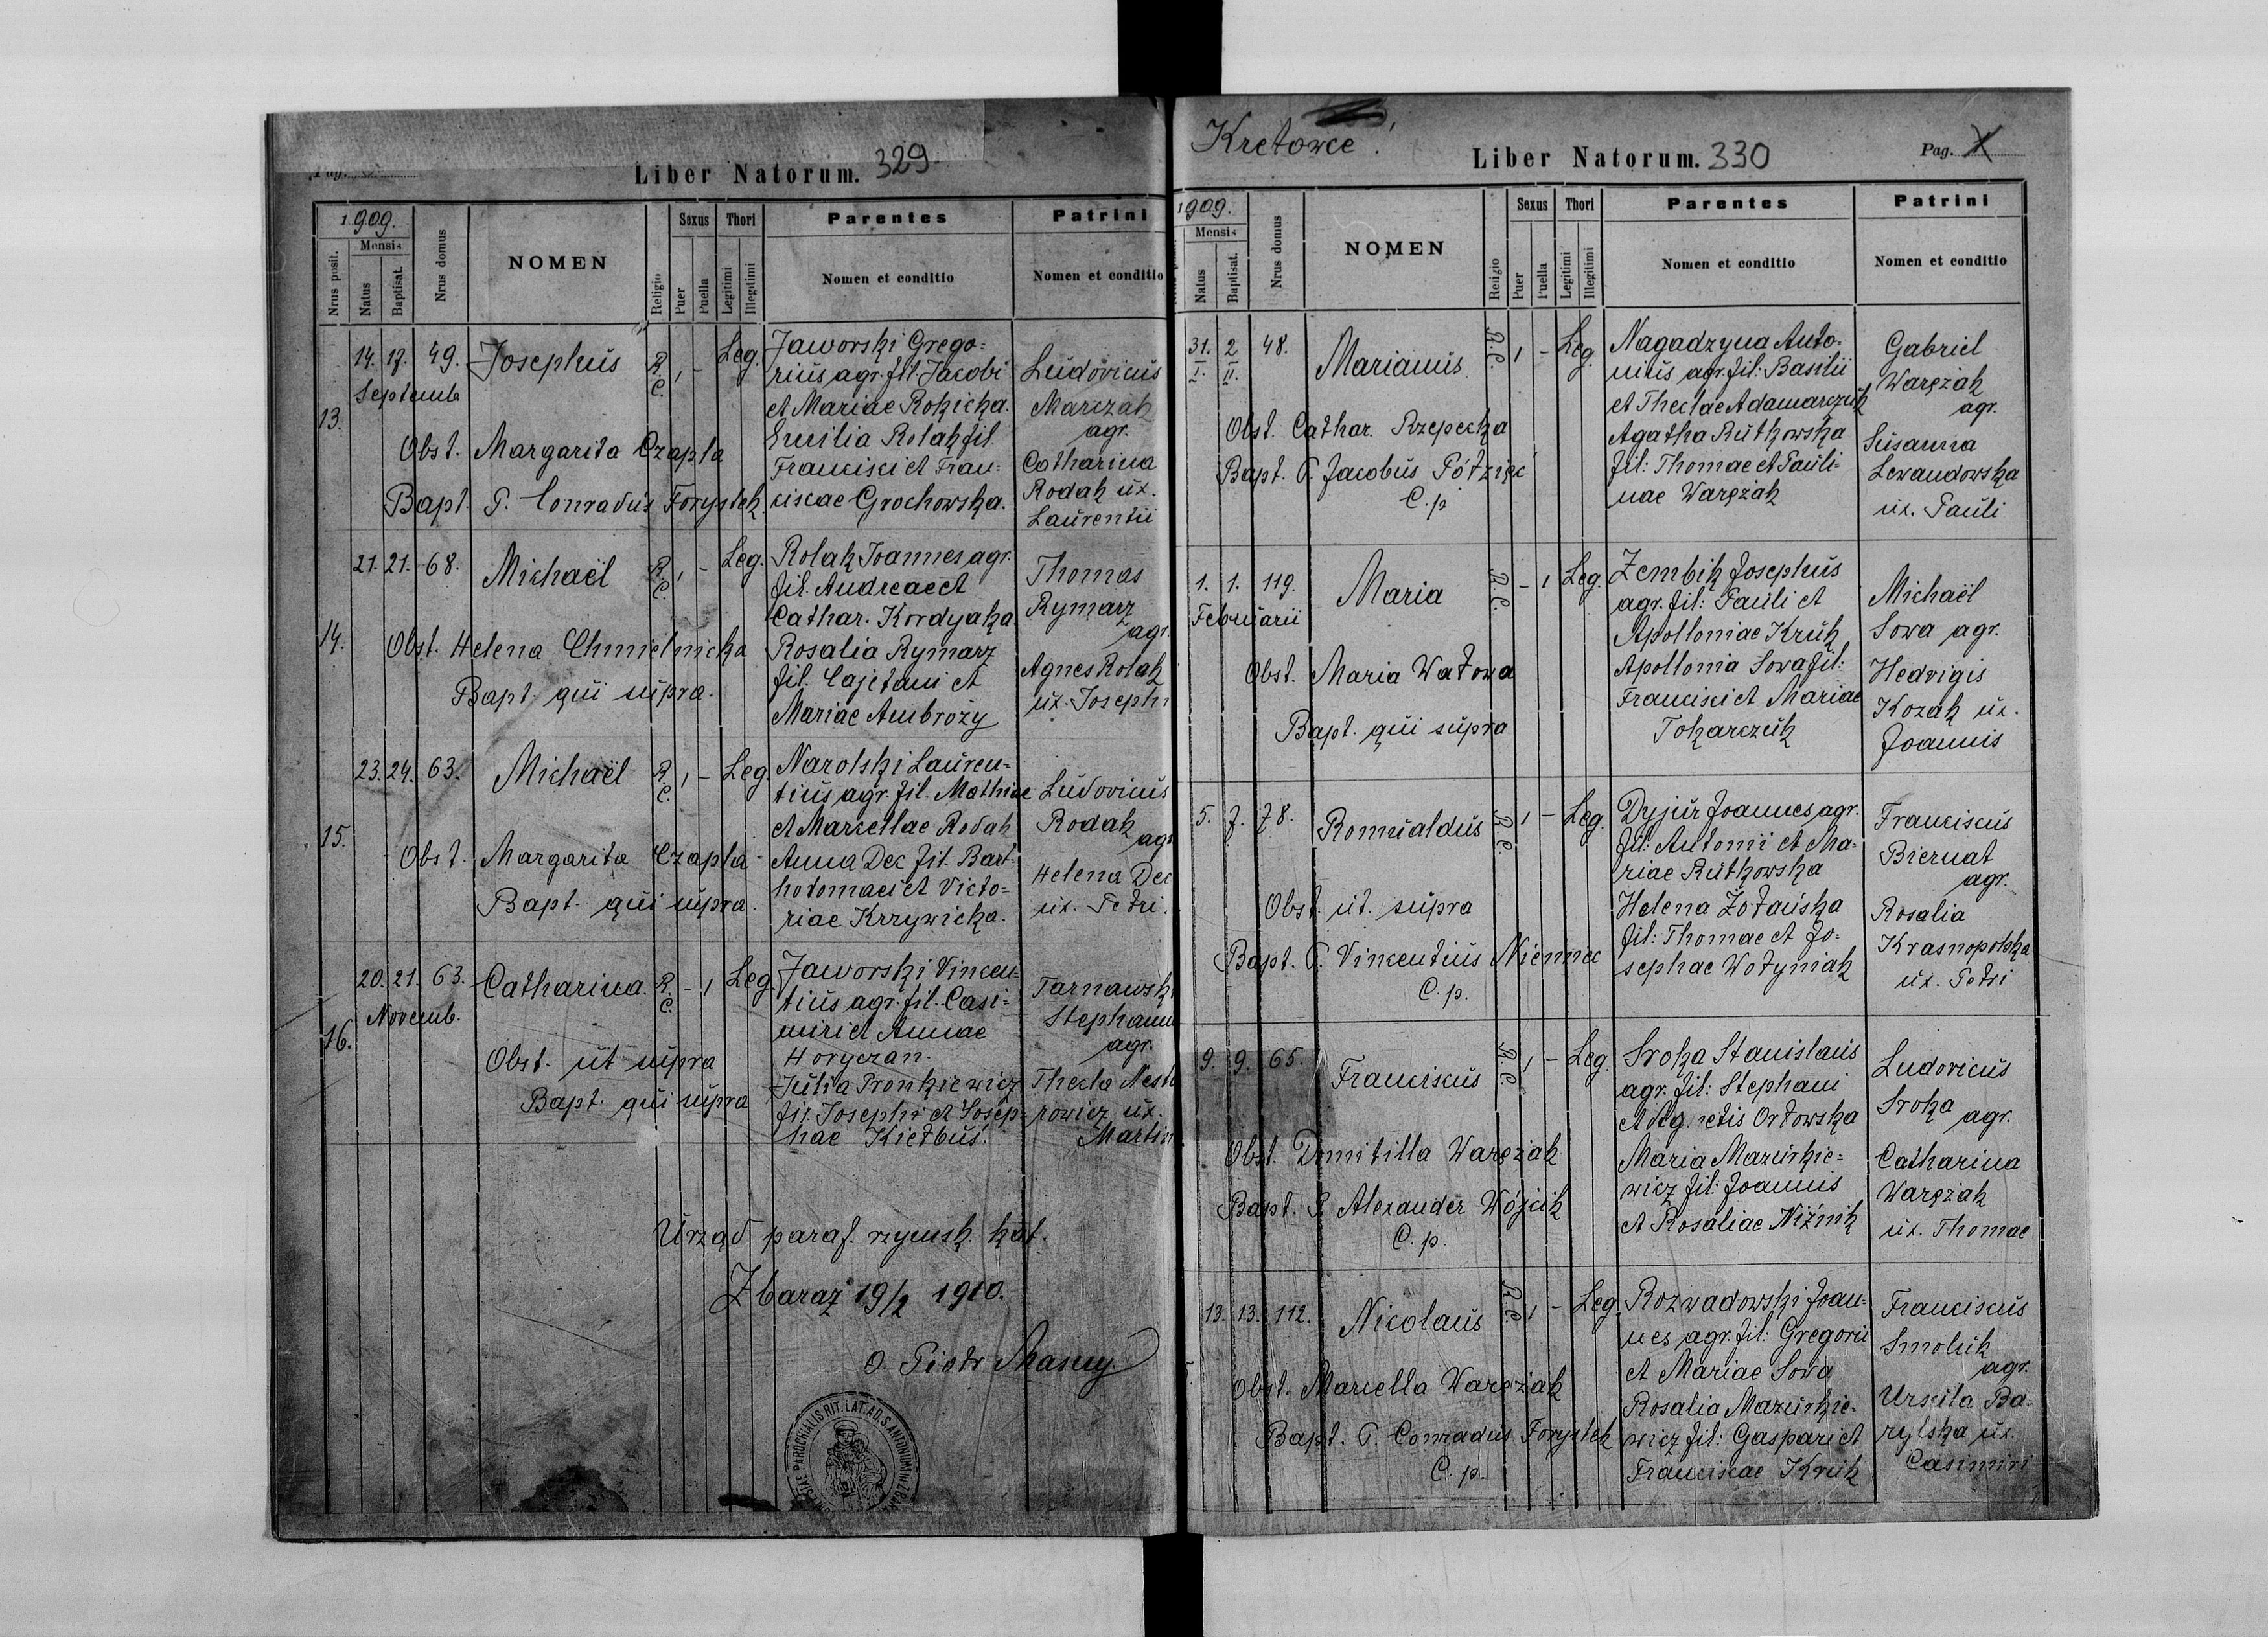 Pag.
Liber Natorum. 329
1909.
Mensis
Nrus posit.
Natus
Baptisat.
Nrus domus
NOMEN
Religio
Sexus
Puer
Puella
Thori
Legitimi
Illegitimi
Parentes
Nomen et conditio
Patrini
Nomen et conditio
13.
14. 17. 49. Josephus R. C. 1 - Leg.
Septemb
Obst. Margarita Czapla
Bapt. P. Conradus Forystek
Jaworski Grego=
rius agr. fil. Jacobi
et Mariae Rokicka.
Emilia Rolak fil.
Francisci et Fran=
ciscae Grochowska.
Ludovicus
Marczak
agr.
Catharina
Rodak ux.
Laurentii
14.
21. 21. 68. Michaël R. C. 1 - Leg.
Obst. Helena Chmielnicka
Bapt. qui supra.
Rolak Joannes agr.
fil. Andreae et
Cathar. Kordyaka
Rosalia Rymarz
fil. Cajetani et
Mariae Ambroży
Thomas
Rymarz
agr.
Agnes Rolak
ux. Josephi
15.
23. 24. 63. Michaël R. C. 1 - Leg.
Obst. Margarita Czapla
Bapt. qui supra.
Narolski Lauren=
tius agr. fil. Mathiae
et Marcellae Rodak
Anna Dec fil. Bart=
holomaei et Victo=
riae Krzywicka.
Ludovicus
Rodak
agr
Helena Dec
ux. Petri.
16.
20. 21. 63. Catharina. R. C. - 1 Leg.
Novemb.
Obst. ut supra
Bapt. qui supra
Jaworski Vincen=
tius agr. fil. Casi=
miri et Annae
Horyczan.
Julia Pronkiewicz
fil. Josephi et Josep=
hae Kiełbus.
Tarnawsk
Stephanu
agr.
Thecla Nest
rowicz ux.
Martin
Urząd paraf. rzymsk. kat.
Zbaraż 19/2 1910.
O. Piotr
Kretowce
Liber Natorum. 330
Pag. X
1909.
Mensis
Natus
Baptisat.
Nrus domus
NOMEN
Religio
Sexus
Puer
Puella
Thori
Legitimi
Illegitimi
Parentes
Nomen et conditio
Patrini
Nomen et conditio
31. 2 48. Marianus R. C. 1 - Leg.
I. II.
Obst. Cathar. Rzepecka
Bapt. P. Jacobus Półzięć
C. p.
Nagadzyna Anto=
nius agr. fil: Basilii
et Theclae Adamarczuk
Agatha Rutkowska
fil: Thomae et Pauli=
nae Warężak
Gabriel
Warężak
agr.
Susanna
Lewandowska
ux. Pauli
1. 1. 119. Maria R. C. - 1 Leg.
Februarii
Obst. Maria Wałowa
Bapt. qui supra
Zembik Josephus
agr. fil: Pauli et
Apolloniae Kruk
Apollonia Sowa fil:
Francisci et Mariae
Tokarczuk
Michaël
Sowa agr.
Hedvigis
Kozak ux.
Joannis
5. 7. 78. Romualdus R. C. 1 - Leg.
Obst. ut. supra
Bapt. P. Vincentius Niemiec
C. p.
Dyjur Joannes agr.
fil: Antonii et Ma=
riae Rutkowska
Helena Żołańska
fil: Thomae et Jo=
sephae Wołyniak
Franciscus
Biernat
agr.
Rosalia
Krasnopolska
ux. Petri
9. 9. 65. Franciscus R. C. 1 - Leg.
Obst. Domitilla Warężak
Bapt. P. Alexander Wójcik
C. p.
Sroka Stanislaus
agr. fil: Stephani
et Agnetis Orłowska
Maria Mazurkie=
wicz fil: Joannis
et Rosaliae Niźnik
Ludovicus
Sroka agr.
Catharina
Warężak
ux. Thomae
13. 13. 112. Nicolaus R. C. 1 - Leg.
Obst. Marcella Warężak
Bapt. P. Conradus Forystek
C. p.
Rozwadowski Joan=
nes agr. fil: Gregorii
et Mariae Sowa
Rosalia Mazurkie=
wicz fil: Gaspari et
Franciscae Kruk
Franciscus
Smoluk
agr.
Ursula Ba=
rylska ux.
Casimiri